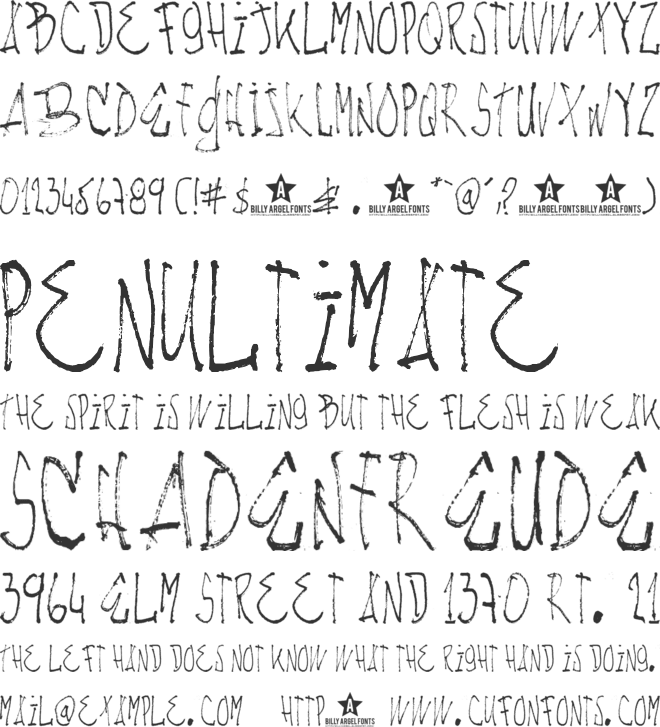 ABCDEFGHIJKLMNOPQRSTUVWXYZ
ABCDEFGHIJKLMNOPQRSTUVXWYZ
0123456789 (!#$ A BILLY ARGEL FONTS & . A BILLY ARGEL FONTS *"@',? A BILLY ARGEL FONTS A BILLY ARGEL FONTS )
PENULTIMATE
THE SPIRIT IS WILLING BUT THE FLESH IS WEAK
SCHADENFREUDE
3964 ELM STREET AND 1370 RT. 21
THE LEFT HAND DOES NOT KNOW WHAT THE RIGHT HAND IS DOING.
MAIL@EXAMPLE.COM HTTP A BILLY ARGEL FONTS WWW.CUFONFONTS.COM